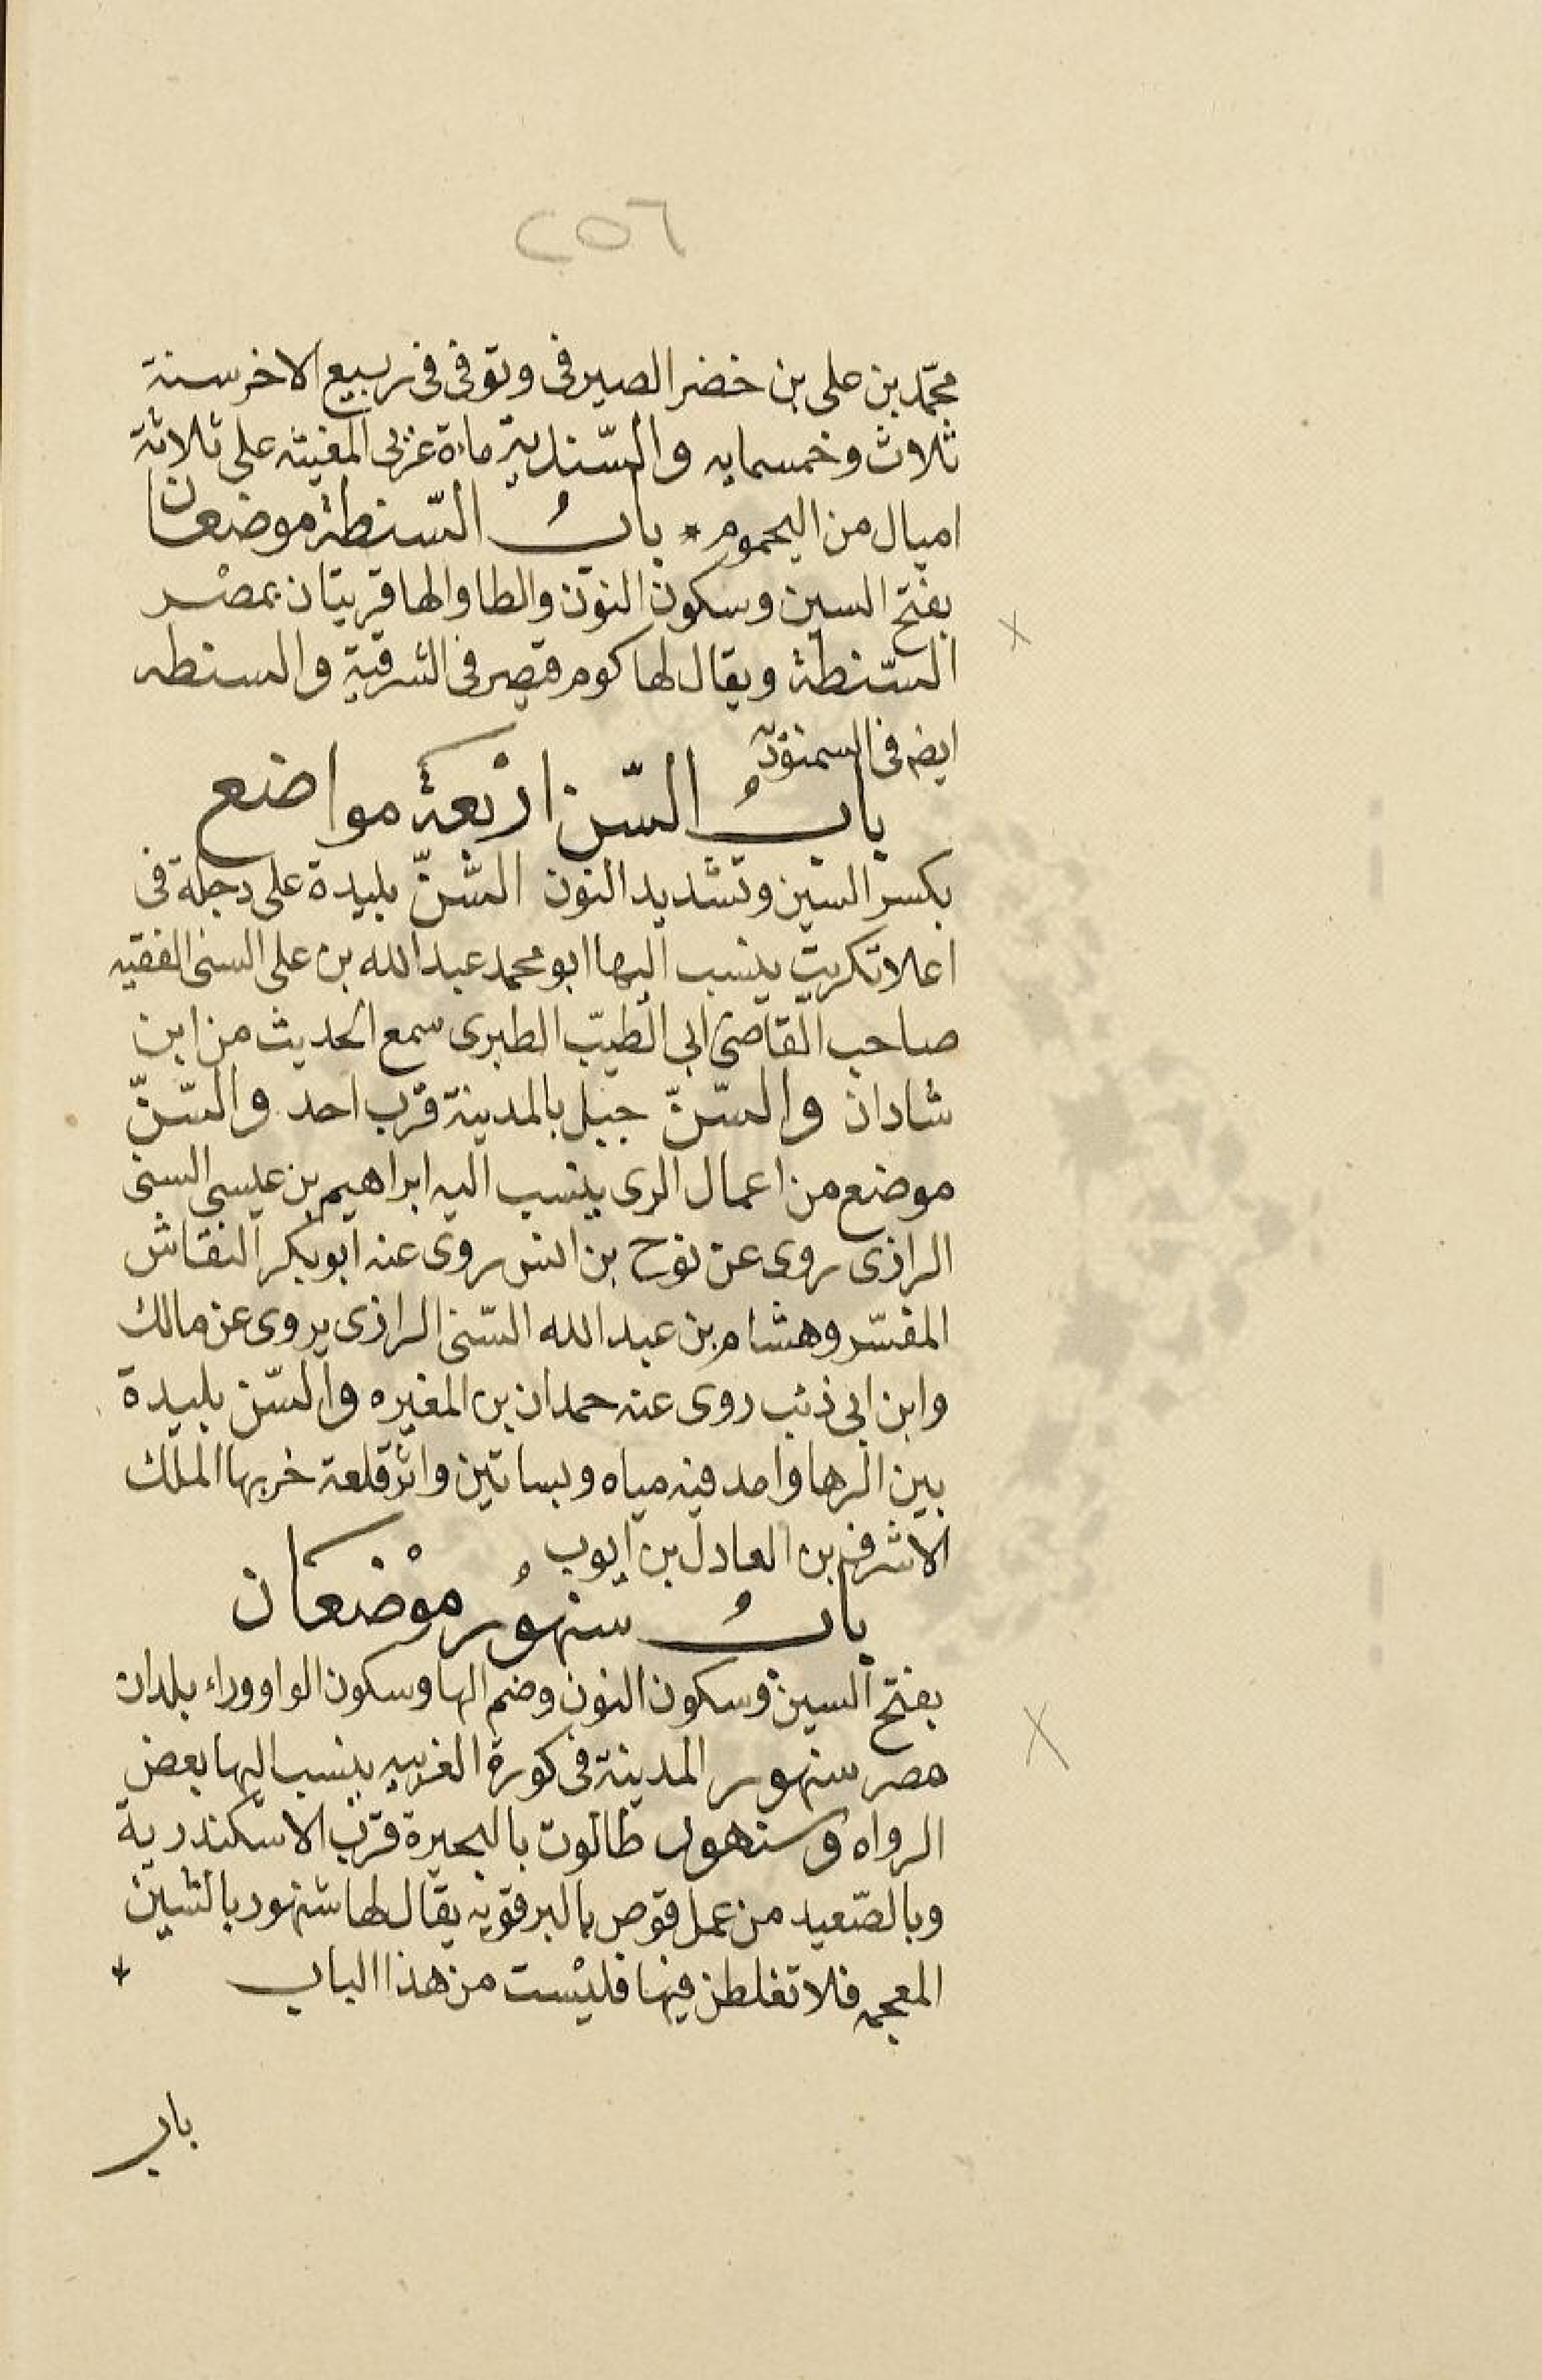 ٢٥٦
محمّد بن على بن خضر الصيرفى وتوفى فى ربيع الاخر سنة
ثلاث وخمسمايه والسّندية ماءة غربى المغيثه على ثلاثة
اميال من اليحموم * بابُ السّنطة موضعان
بفتح السين وسكون النون والطا والها قريتان بمصر
السّنطة ويقال لها كوم قيصر فى الشرقية والسنطه
ايضه فى السمنوديّه
بابُ السّن اربْعة مواضع
بكسر السين وتشديد النون السّنّ بليدة على دجلة فى
اعلا تكريت ينسب اليها ابو محمد عبد الله بن على السنى الفقيه
صاحب القاضى ابى الطيّب الطبرى سمع الحديث من ابن
شادان والسّنّ جبل بالمدينة قرب احد والسّنّ
موضع من اعمال الرى ينسب اليه ابراهيم بن عيسى السنى
الرازى روى عن نوح بن انس روى عنه ابو بكر النقاش
المفسّر وهشام بن عبد الله السّنى الرازى يروى عن مالك
وابن ابى ذئب روى عنه حمدان بن المغيره والسّن بليدة
بين الرها وامد فيه مياه وبساتين واثر قلعة خربها الملك
الاشرف بن العادل بن ايوب
بابُ سنهُور موْضعان
بفتح السين وسكون النون وضم الها وسكون الواو وراء بلدان
مصر سنهور المدينة فى كورة الغربيه ينسب اليها بعض
الرواه وسنهور طالوت بالبحيرة قرب الاسكندرية
وبالصّعيد من عمل قوص بالبر قويه يقال لها شنهور بالشين
المعجمه فلا تغلطن فيها فليْست من هذا الباب
باب